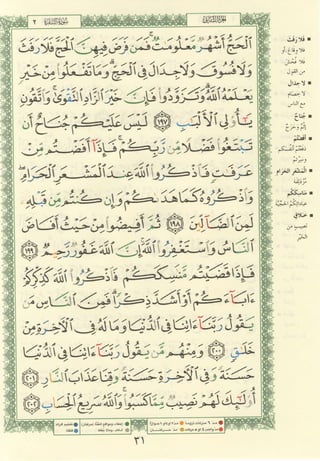 سُورَةُ البَقَرَةِ ٢
ٱلْحَجُّ أَشْهُرٌ مَّعْلُومَٰتٌ ۚ فَمَن فَرَضَ فِيهِنَّ ٱلْحَجَّ فَلَا رَفَثَ
وَلَا فُسُوقَ وَلَا جِدَالَ فِى ٱلْحَجِّ ۗ وَمَا تَفْعَلُوا۟ مِنْ خَيْرٍ
يَعْلَمْهُ ٱللَّهُ ۗ وَتَزَوَّدُوا۟ فَإِنَّ خَيْرَ ٱلزَّادِ ٱلتَّقْوَىٰ ۚ وَٱتَّقُونِ
يَٰٓأُو۟لِى ٱلْأَلْبَٰبِ ١٩٧ لَيْسَ عَلَيْكُمْ جُنَاحٌ أَن
تَبْتَغُوا۟ فَضْلًا مِّن رَّبِّكُمْ ۚ فَإِذَآ أَفَضْتُم مِّنْ
عَرَفَٰتٍ فَٱذْكُرُوا۟ ٱللَّهَ عِندَ ٱلْمَشْعَرِ ٱلْحَرَامِ ۖ
وَٱذْكُرُوهُ كَمَا هَدَىٰكُمْ وَإِن كُنتُم مِّن قَبْلِهِۦ
لَمِنَ ٱلضَّآلِّينَ ١٩٨ ثُمَّ أَفِيضُوا۟ مِنْ حَيْثُ أَفَاضَ
ٱلنَّاسُ وَٱسْتَغْفِرُوا۟ ٱللَّهَ ۚ إِنَّ ٱللَّهَ غَفُورٌ رَّحِيمٌ ١٩٩
فَإِذَا قَضَيْتُم مَّنَٰسِكَكُمْ فَٱذْكُرُوا۟ ٱللَّهَ كَذِكْرِكُمْ
ءَابَآءَكُمْ أَوْ أَشَدَّ ذِكْرًا ۗ فَمِنَ ٱلنَّاسِ مَن
يَقُولُ رَبَّنَآ ءَاتِنَا فِى ٱلدُّنْيَا وَمَا لَهُۥ فِى ٱلْءَاخِرَةِ مِنْ
خَلَٰقٍ ٢٠٠ وَمِنْهُم مَّن يَقُولُ رَبَّنَآ ءَاتِنَا فِى ٱلدُّنْيَا
حَسَنَةً وَفِى ٱلْءَاخِرَةِ حَسَنَةً وَقِنَا عَذَابَ ٱلنَّارِ ٢٠١
أُو۟لَٰٓئِكَ لَهُمْ نَصِيبٌ مِّمَّا كَسَبُوا۟ ۚ وَٱللَّهُ سَرِيعُ ٱلْحِسَابِ ٢٠٢
٣١
فلا رفث
لا جدال
جناح
أفضتم
المشعر الحرام
مناسككم
خلاق